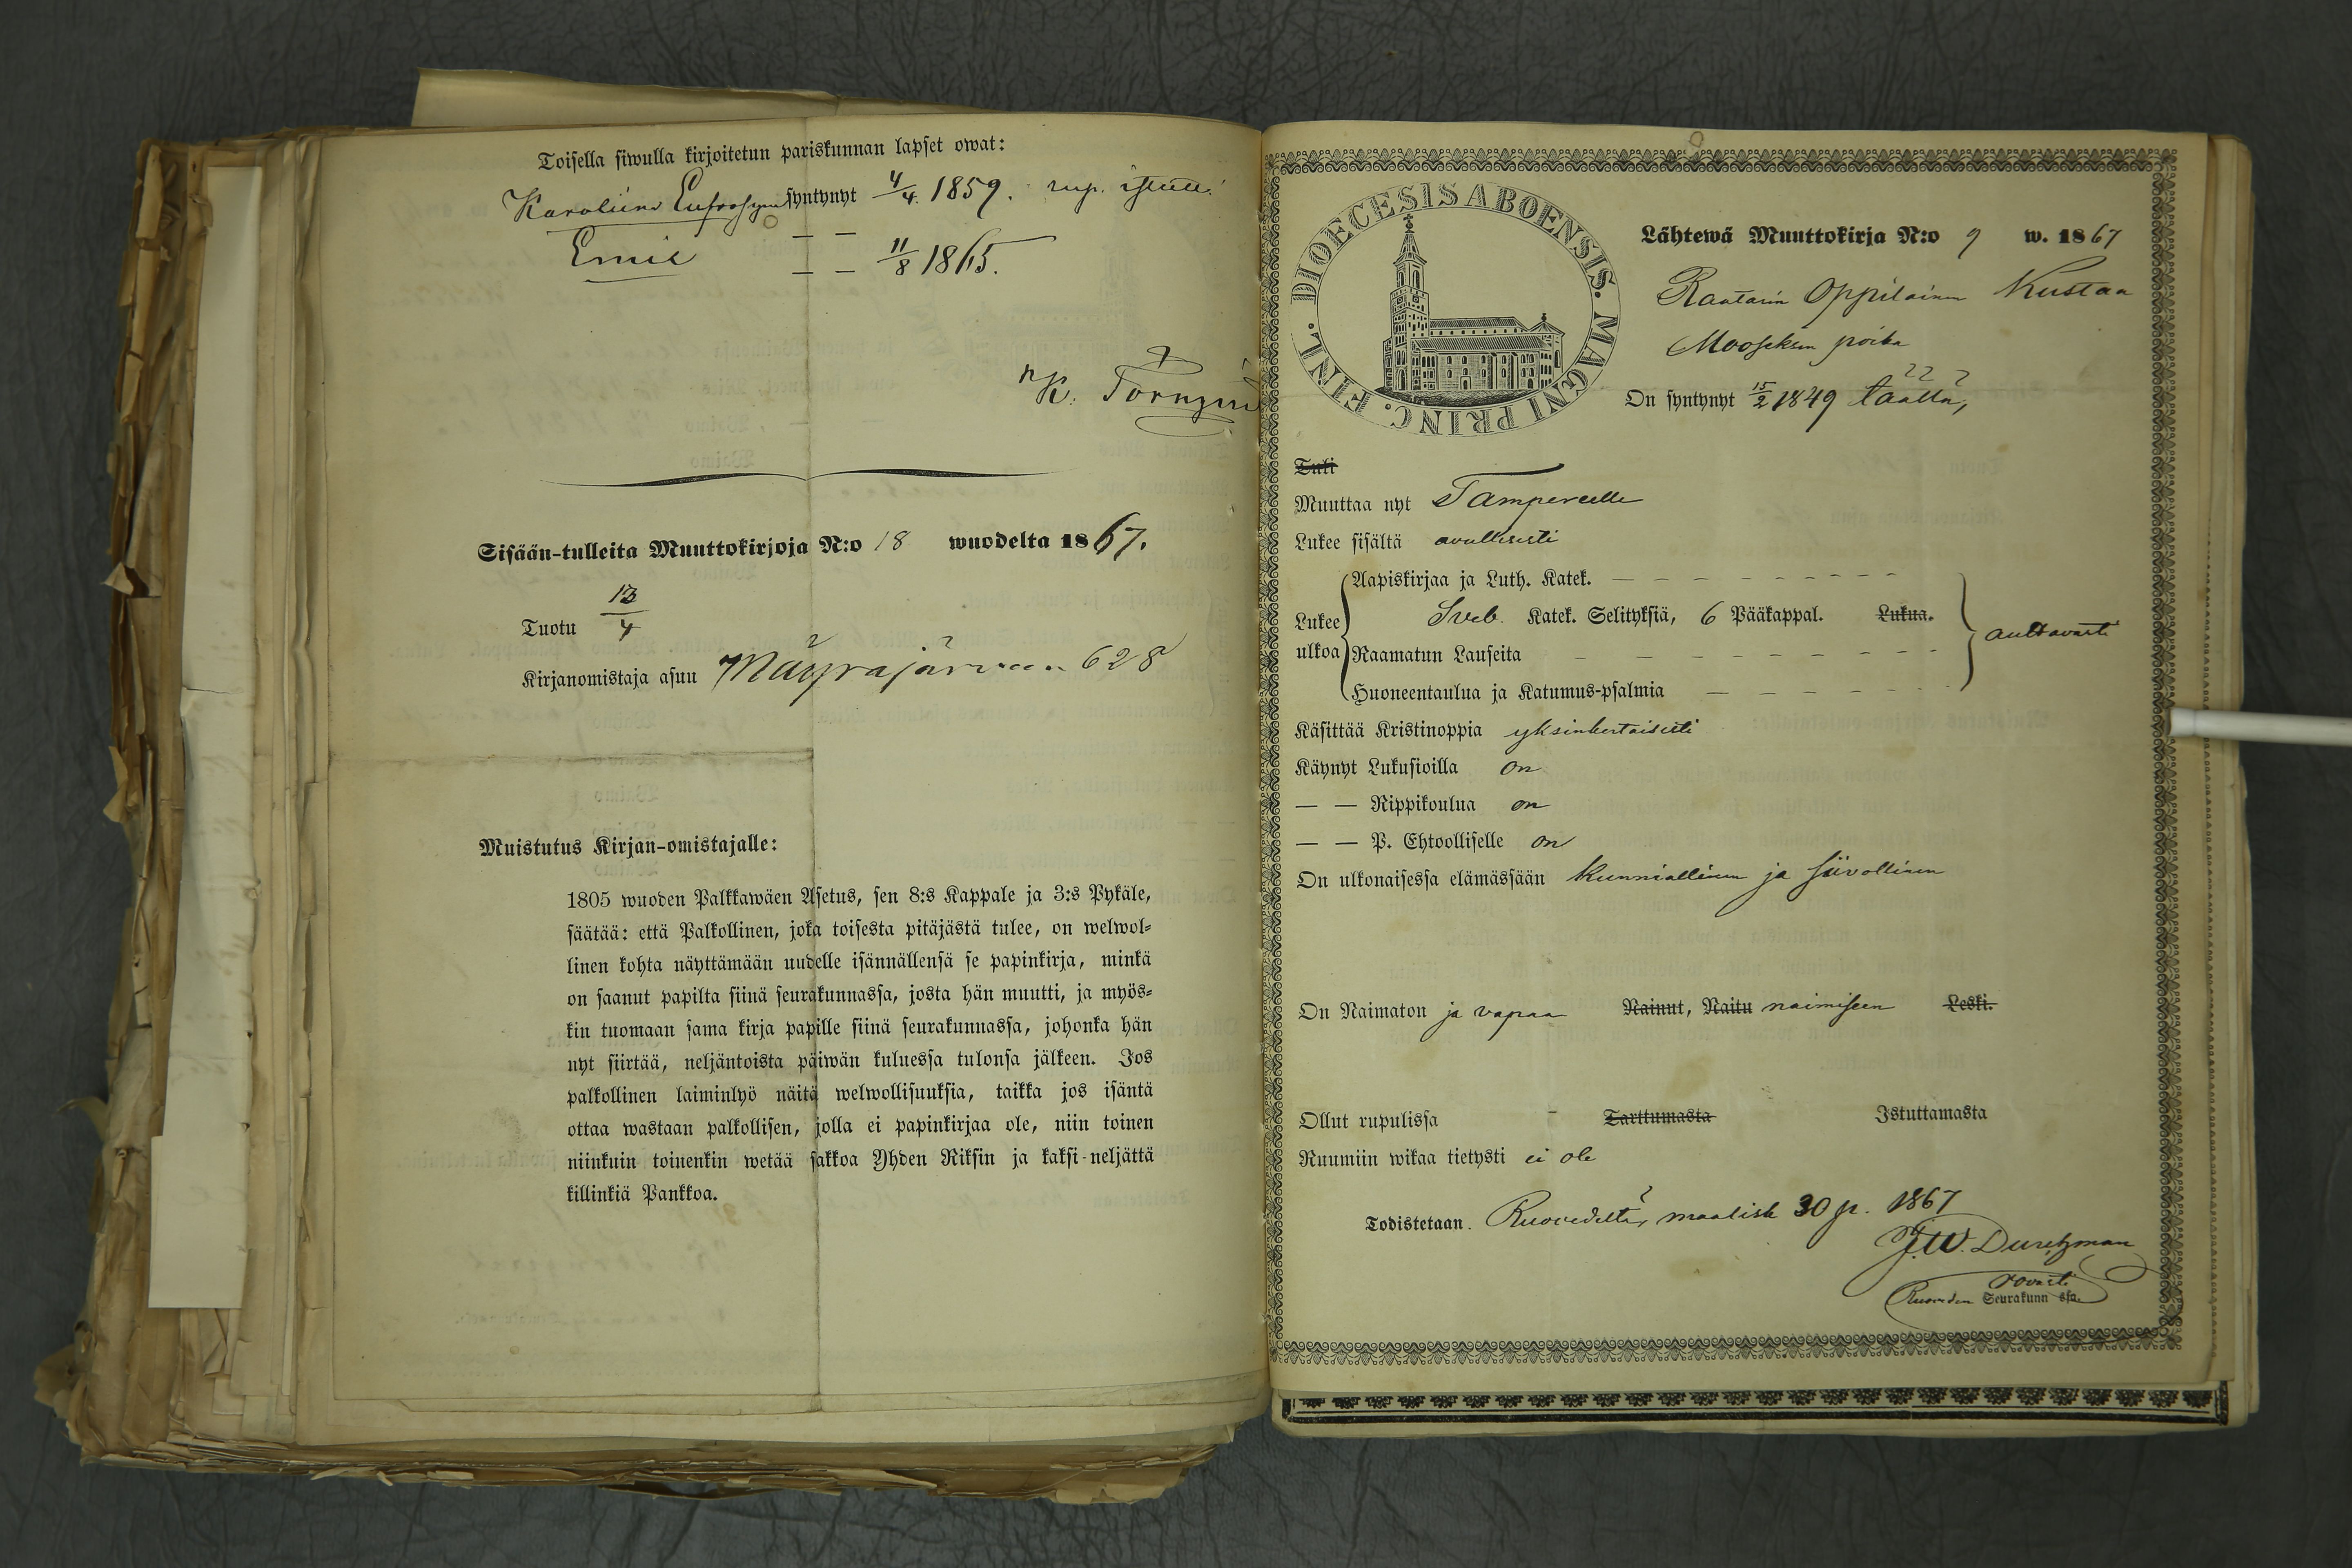 Toisella siwulla kirjoitetun pariskunnan lapset owat:
Karoliina Eufrosyna syntynyt 4/4 1859. rup. istutt.
Emil — — 11/8 1865.
— —
K. Törnqvist
Sisään-tulleita Muuttokirjoja N:o 18 wuodelta 1867.
Tuotu 13/4
Kirjanomistaja asuu 628
Muistutus Kirjan-omistajalle:
1805 wuoden Palkkawäen Asetus, sen 8:s Kappale ja 3:s Pykäle,
säätää: että Palkollinen, joka toisesta pitäjästä tulee, on welwol-
linen kohta näyttämään uudelle isännällensä se papinkirja, minkä
on saanut papilta siinä seurakunnassa, josta hän muutti, ja myös-
kin tuomaan sama kirja papille siinä seurakunnassa, johonka hän
nyt siirtää, neljäntoista päiwän kuluessa tulonsa jälkeen. Jos
palkollinen laiminlyö näitä welwollisuuksia, taikka jos isäntä
ottaa wastaan palkollisen, jolla ei papinkirjaa ole, niin toinen
niinkuin toinenkin wetää sakkoa Yhden Riksin ja kaksi-neljättä
killinkiä Pankkoa.
DIOECESIS ABOENSIS. MAGNI PRINC. FINL.
Lähtewä Muuttokirja N:o 9 w. 1867
Raatarin Oppilainen Kustaa
Mooseksen poika
On syntynyt 15/2 1849 täällä,
Tuli
Muuttaa nyt Tampereelle
Lukee sisältä avullisesti
Lukee ulkoa
Aapiskirjaa ja Luth. Katek. — — — — — — — — —
Sveb. Katek. Selityksiä, 6 Pääkappal. Lukua.
Raamatun Lauseita — — — — — — — —
Huoneentaulua ja Katumus-psalmia — — — — — —
auttavasti
Käsittää Kristinoppia yksinkertaisesti
Käynyt Lukusioilla on
— — Rippikoulua on
— — P. Ehtoolliselle on
On ulkonaisessa elämässään kunniallinen ja siivollinen
On Naimaton ja vapaa Nainut, Naitu naimiseen Leski.
Ollut rupulissa - Tarttumasta Istuttamasta
Ruumiin wikaa tietysti ei ole
Todistetaan. Ruovedeltä, maalisk 30 p. 1867
J.W. Durchman
rovasti
Ruoveden Seurakunnassa